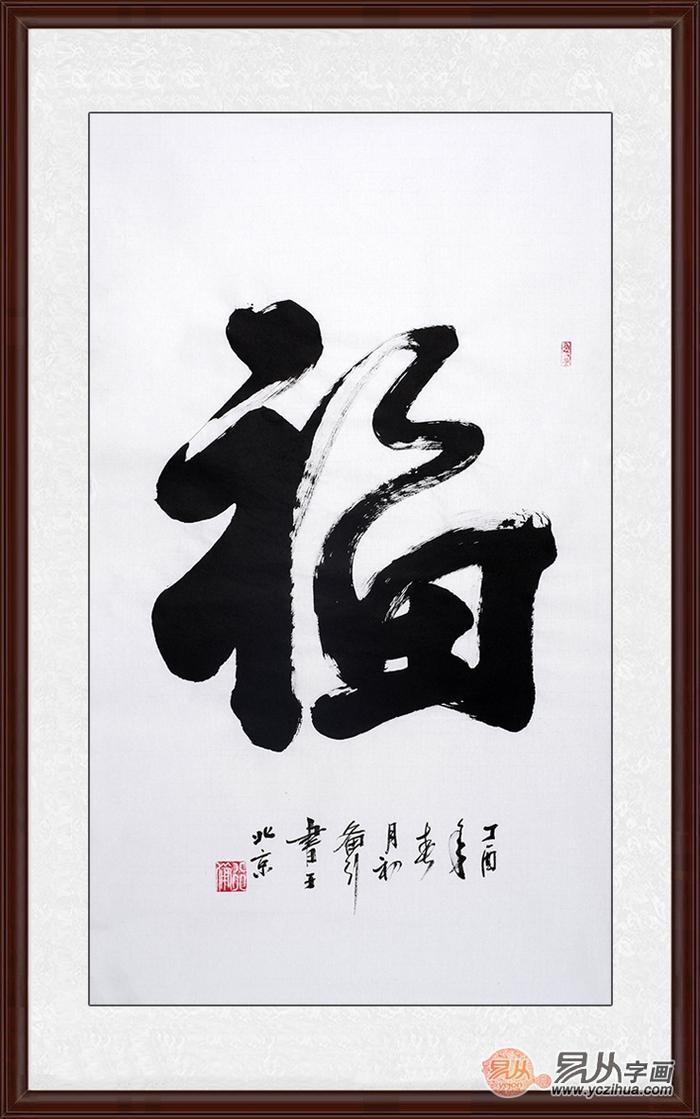 福
丁酉
年
春
月初
书于
北京
易从
yicjon
易从字画
www.yczihua.com